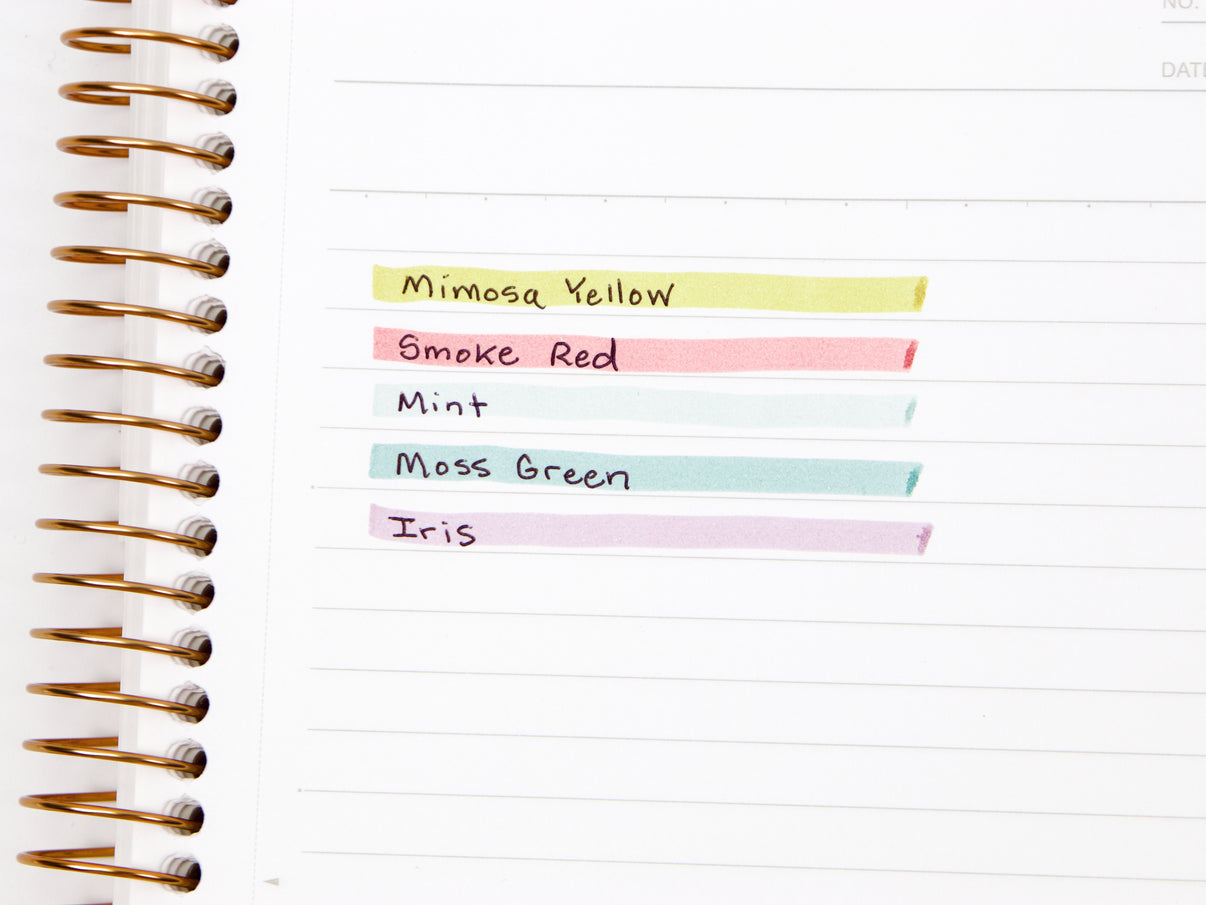 NO.
DATE
Mimosa Yellow
Smoke Red
Mint
Moss Green
Iris